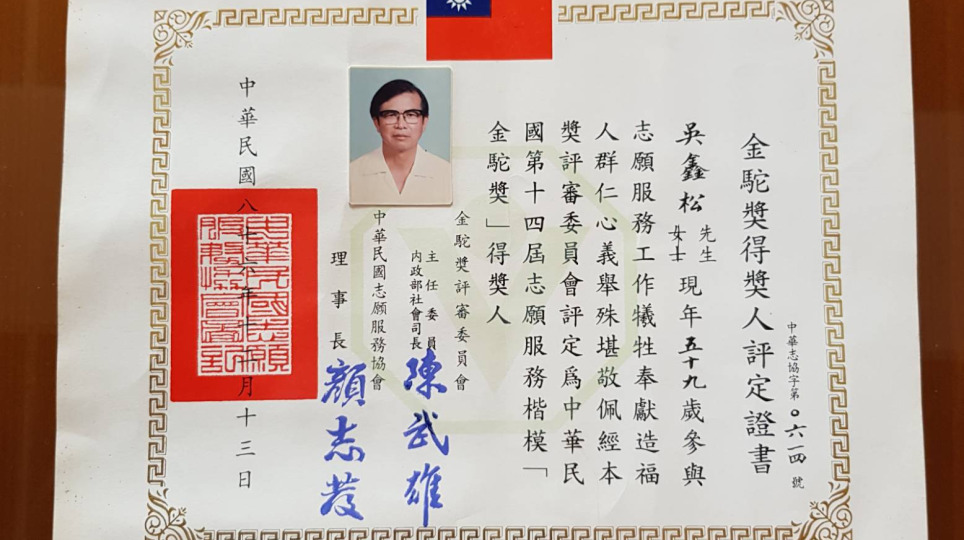 金駝獎得獎人評定證書
中華志協字第〇六一四號
吳鑫松 先生 女士 現年五十九歲參與
志願服務工作犧牲奉獻造福
人群仁心義舉殊堪敬佩經本
獎評審委員會評定為中華民
國第十四屆志願服務楷模「
金駝獎」得獎人
金駝獎評審委員會
主任委員
內政部社會司長
陳武雄
中華民國志願服務協會
理事長
顏志發
中華民國八十六年十二月十三日